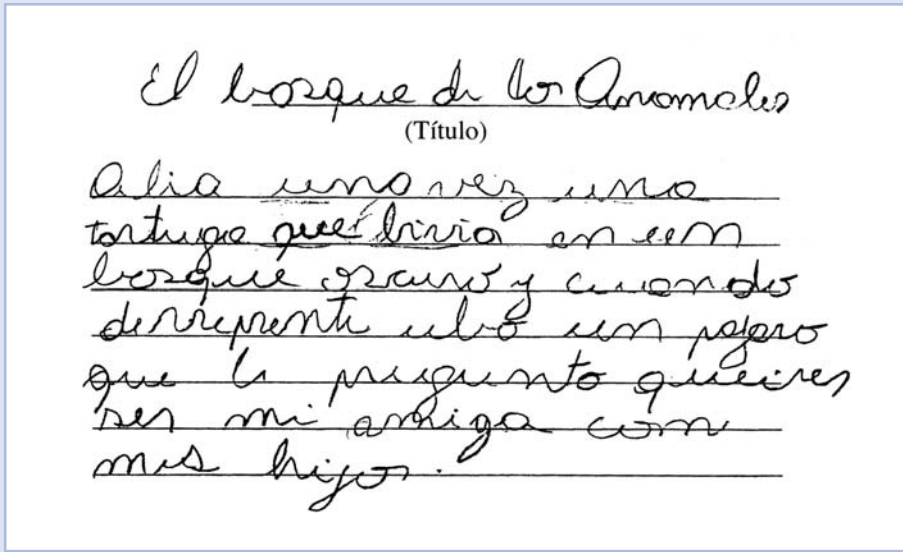 El bosque de los Anomales
(Título)
Abia una vez una
tortuga que bivia en un
bosque oscuro y cuando
derrepente ubo un pajaro
que le pregunto queires
ser mi amiga com
mis hijos.